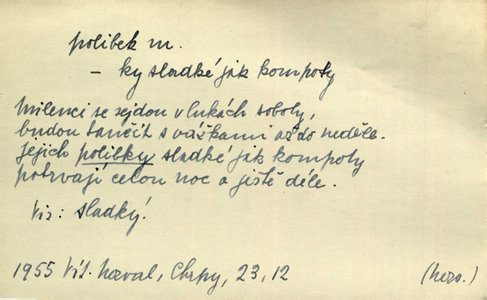 polibek m.
– ky sladké jak kompoty
Milenci se sejdou v lukách soboty,
budou tančit s vážkami až do neděle.
Jejich polibky sladké jak kompoty
potrvají celou noc a ještě déle.
Viz: sladký!
1955 Vít. Nezval, Chrpy, 23, 12 (Nezv.)